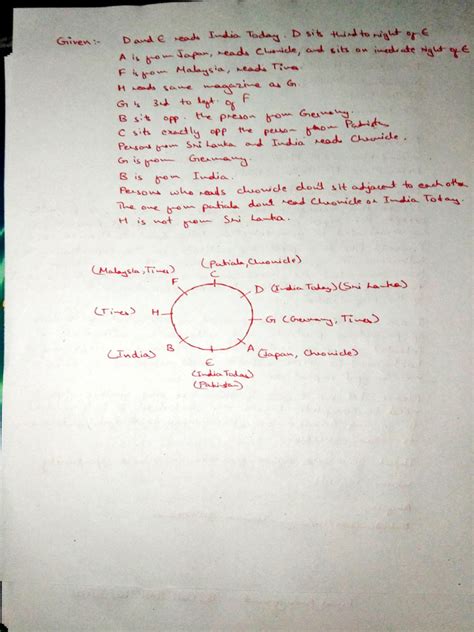 Given:- D and E reads India Today. D sits third to right of E
A is from Japan, reads Chronicle, and sits on imediate right of E
F is from Malaysia, reads Times
H reads same magazine as G.
G is 3rd to left of F
B sits opp. the person from Germany.
C sits exactly opp the person from Pakistan
Persons from Sri Lanka and India reads Chronicle.
G is from Germany.
B is from India.
Persons who reads chronicle don't sit adjacent to each other
The one from patiala dont read Chronicle or India Today.
H is not from Sri Lanka.
(Patiala, Chronicle)
(Malaysia, Times)
C
F
D (India Today) (Sri Lanka)
(Times) H
G (Germany, Times)
(India) B
A (Japan, Chronicle)
E
(India Today)
(Pakistan)